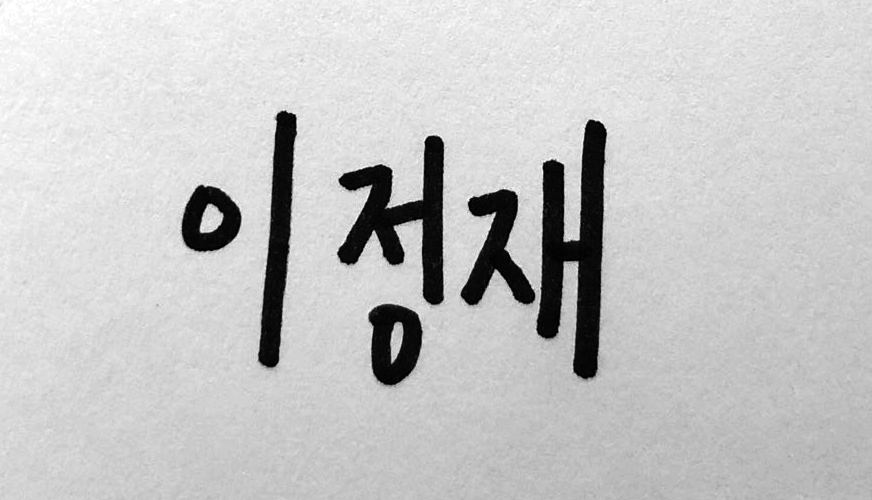 이정재